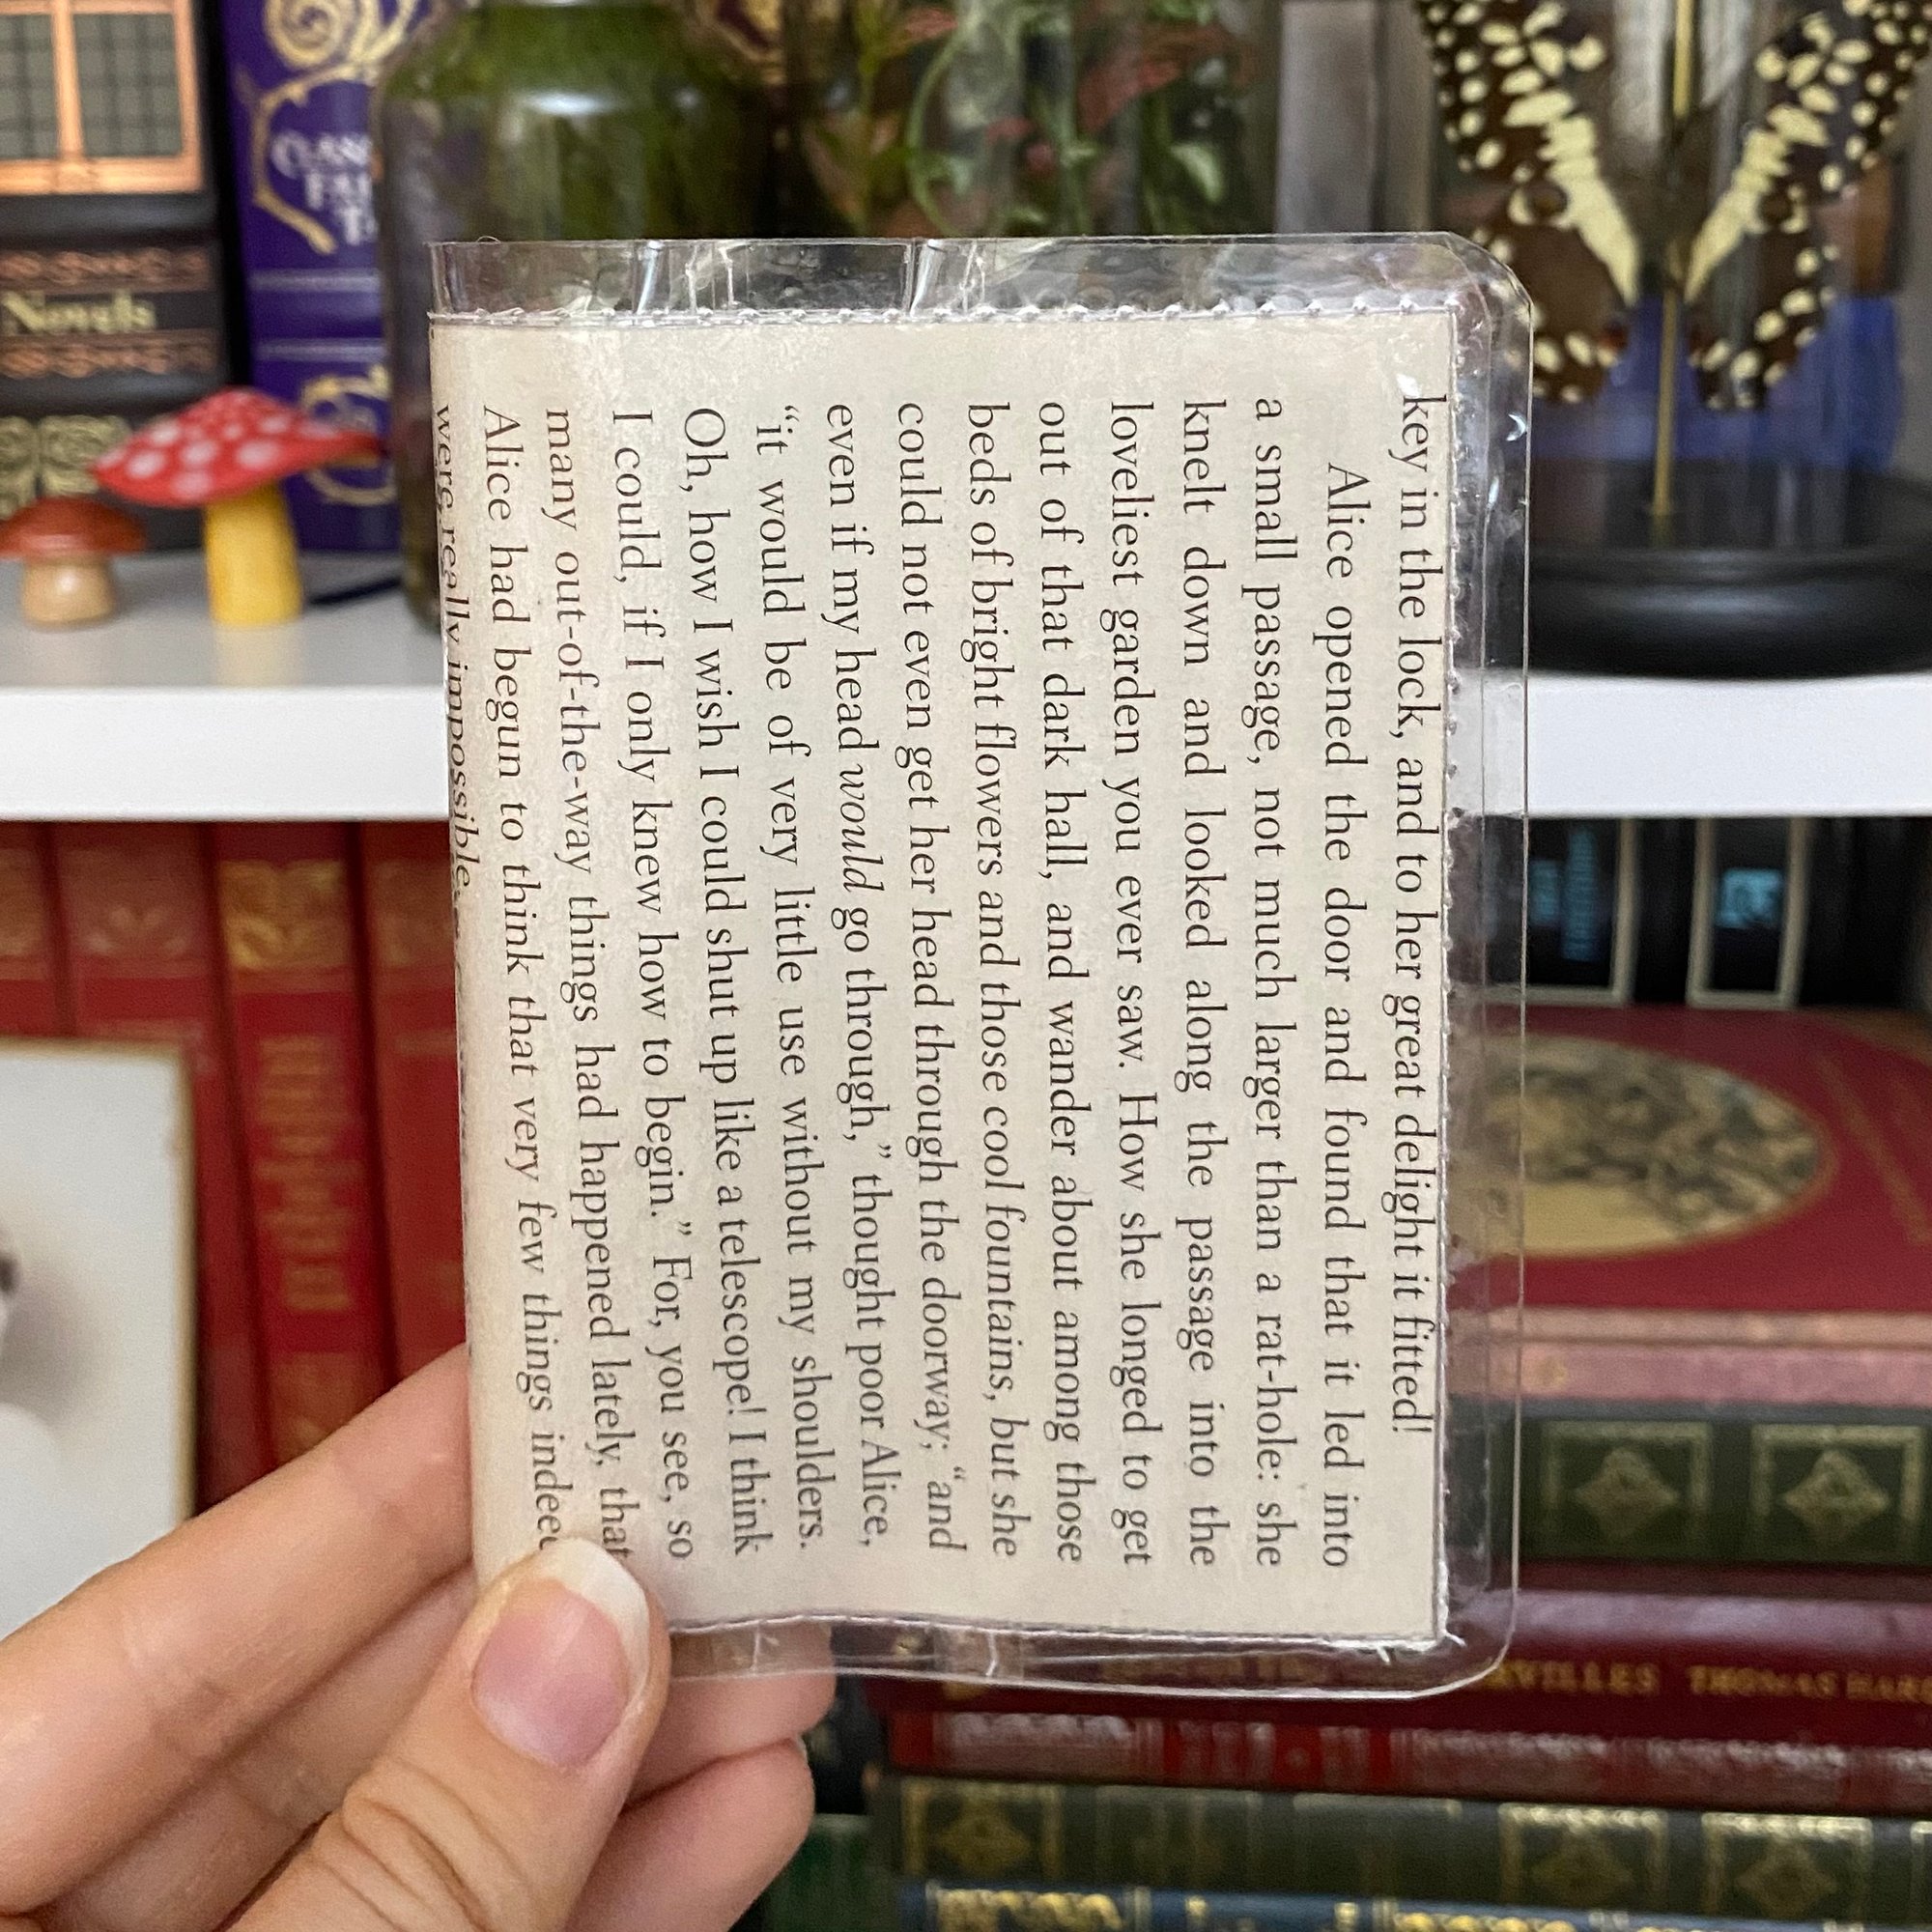 key in the lock, and to her great delight it fitted!
Alice opened the door and found that it led into
a small passage, not much larger than a rat-hole: she
knelt down and looked along the passage into the
loveliest garden you ever saw. How she longed to get
out of that dark hall, and wander about among those
beds of bright flowers and those cool fountains, but she
could not even get her head through the doorway; “and
even if my head would go through,” thought poor Alice,
“it would be of very little use without my shoulders.
Oh, how I wish I could shut up like a telescope! I think
I could, if I only knew how to begin.” For, you see, so
many out-of-the-way things had happened lately, that
Alice had begun to think that very few things indeed
were really impossible.
Novels
THOMAS HAR